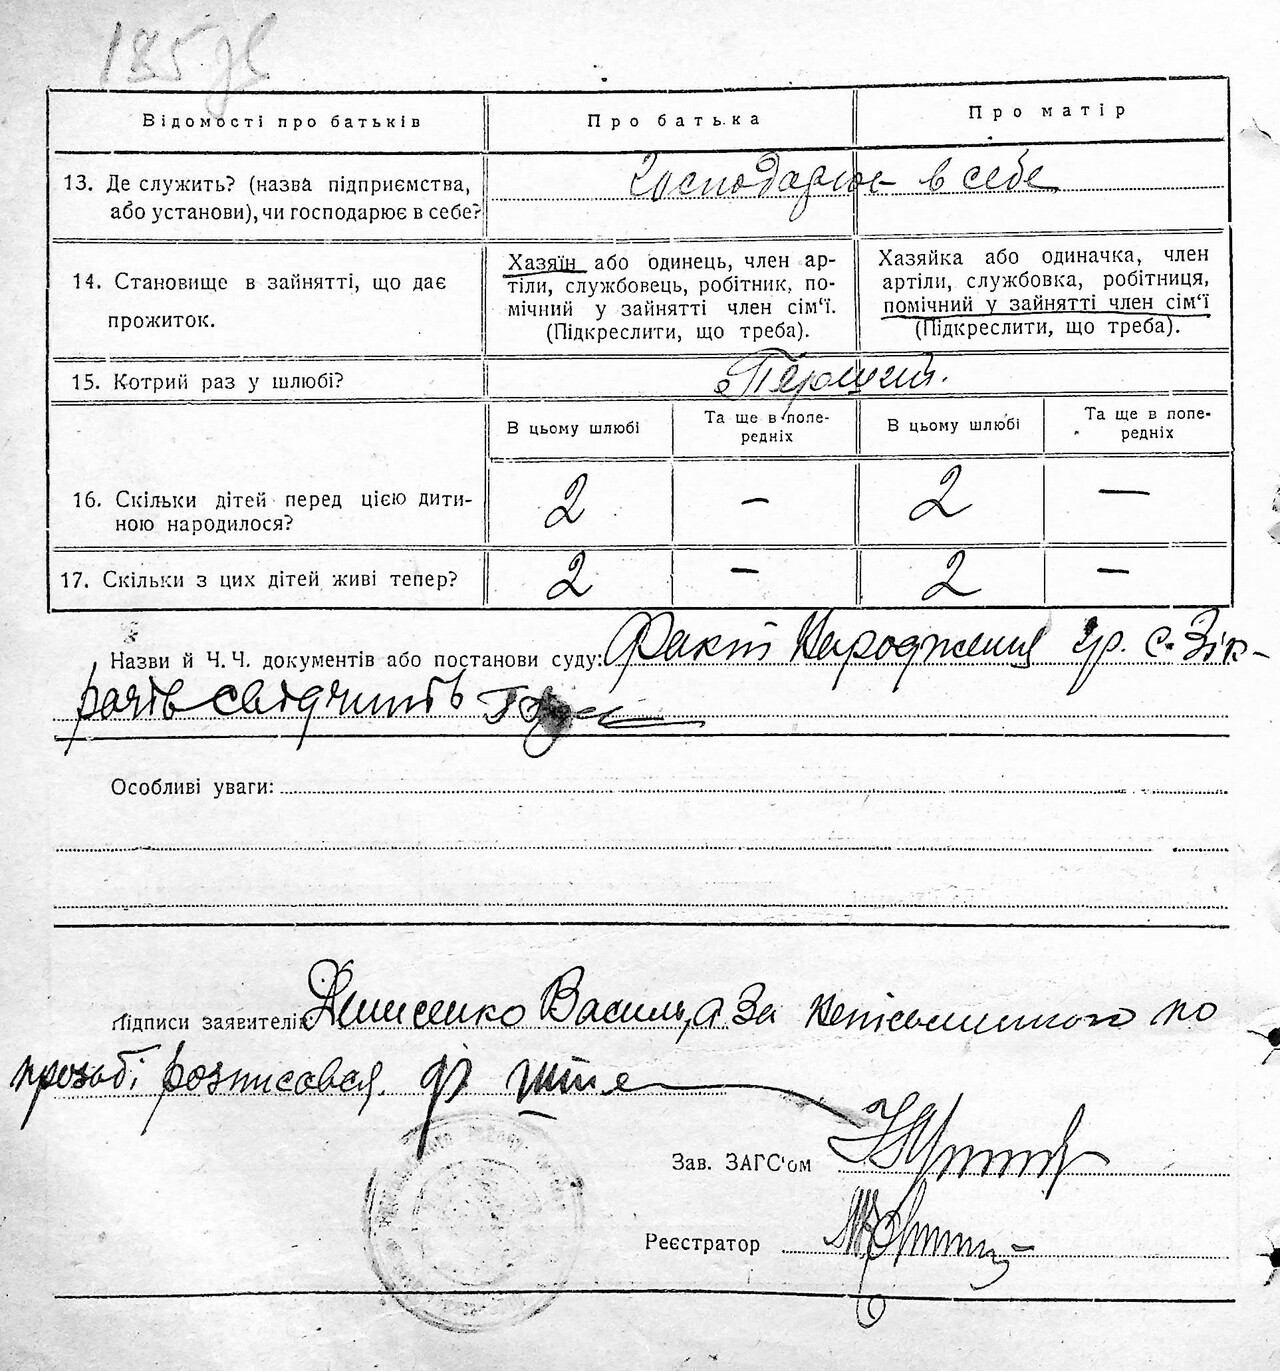 185 зв
Відомості про батьків
Про батька
Про матір
13. Де служить? (назва підприємства,
або установи), чи господарює в себе?
Господарює в себе
14. Становище в зайнятті, що дає
прожиток.
Хазяїн або одинець, член ар-
тіли, службовець, робітник, по-
мічний у зайнятті член сім'ї.
(Підкреслити, що треба).
Хазяйка або одиначка, член
артіли, службовка, робітниця,
помічний у зайнятті член сім'ї
(Підкреслити, що треба).
15. Котрий раз у шлюбі?
Перший.
В цьому шлюбі
Та ще в попе-
редніх
В цьому шлюбі
Та ще в попе-
редніх
16. Скільки дітей перед цією дити-
ною народилося?
2 – 2 –
17. Скільки з цих дітей живі тепер?
2 – 2 –
Назви й Ч. Ч. документів або постанови суду: Факт народження гр. с. Зік-
рачів свідчить
Особливі уваги:
Підписи заявителів Денисенко Василь, а за неписьменного по
прозьбі розписався
Зав. ЗАГС'ом
Реєстратор